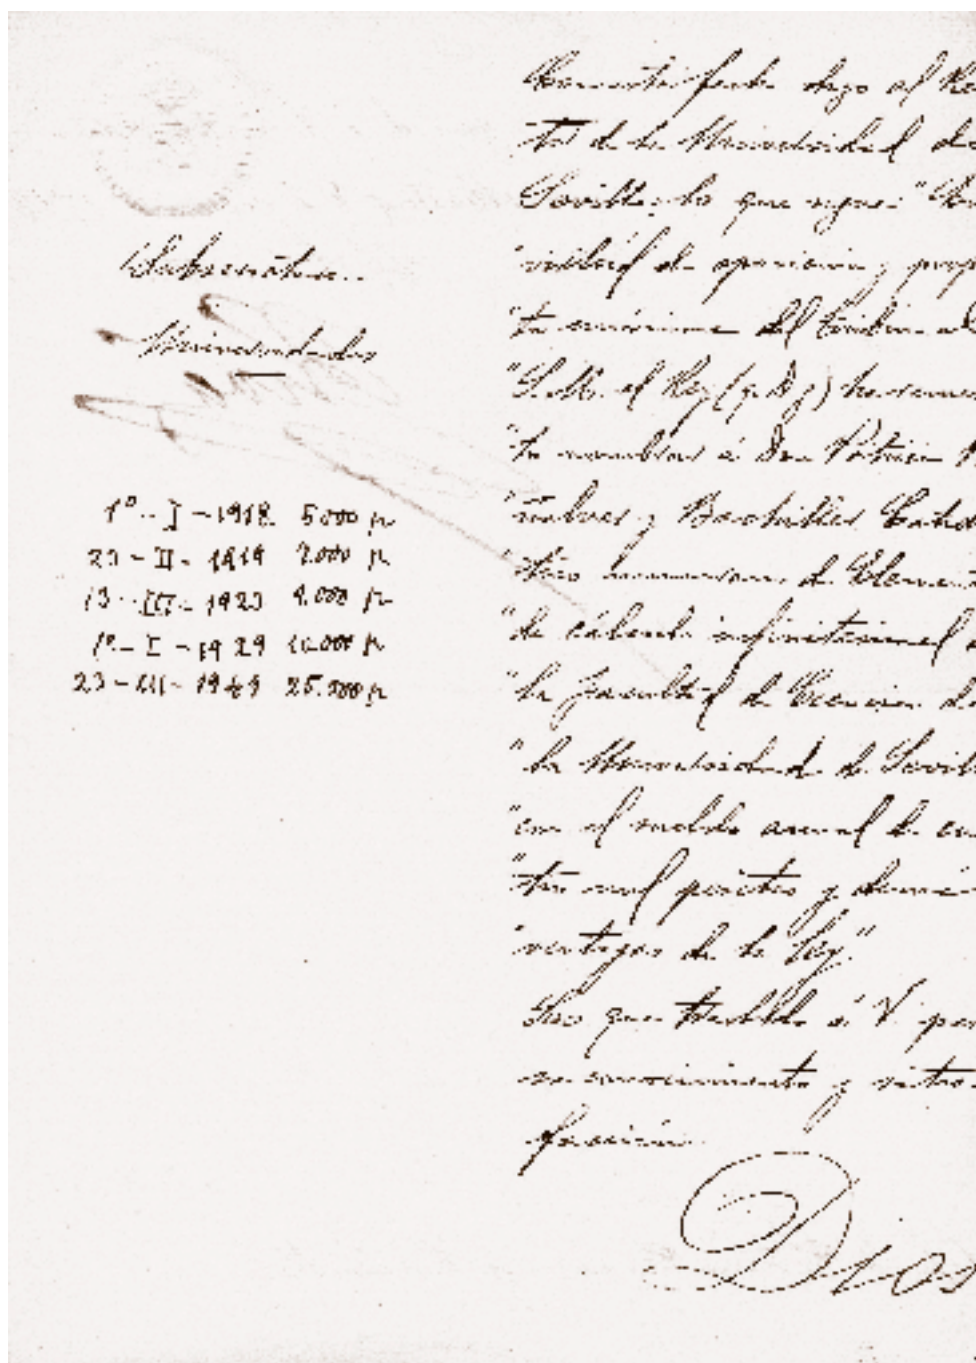 Subsecretaría.
Universidades
1º - I - 1918 5000 p
23 - II - 1919 7.000 p
13 - III - 1923 9.000 p
1º - I - 1929 10.000 p
23 - - 19 9 25.900 p
Con esta fecha digo al Rec
tor de la Universidad de
Sevilla, lo que sigue: "En
"virtud de oposicion y prop
"ta unánime del Tribunal
"S. M. el Rey (q. D. g.) ha
"to nombrar á Don Patricio P
"ñalver y Bachiller Cated
"tico numerario de Elemen
"de cálculo infinitesimal
"la facultad de Ciencias de
"la Universidad de Sevill
"con el sueldo anual de cu
"tro mil pesetas y demás
"ventajas de la Ley."
Lo que traslado á V. par
su conocimiento y satis
facción.
Dios